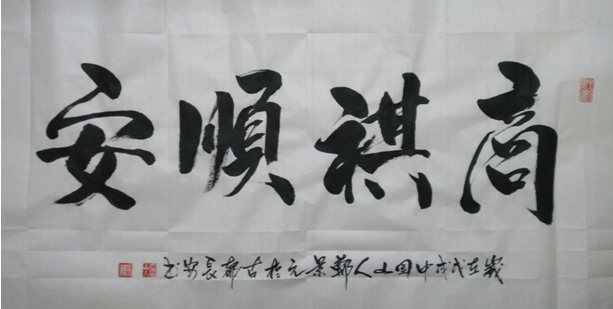 商祺順安
歲在戊戌中回山人鄭景元於古都長安書